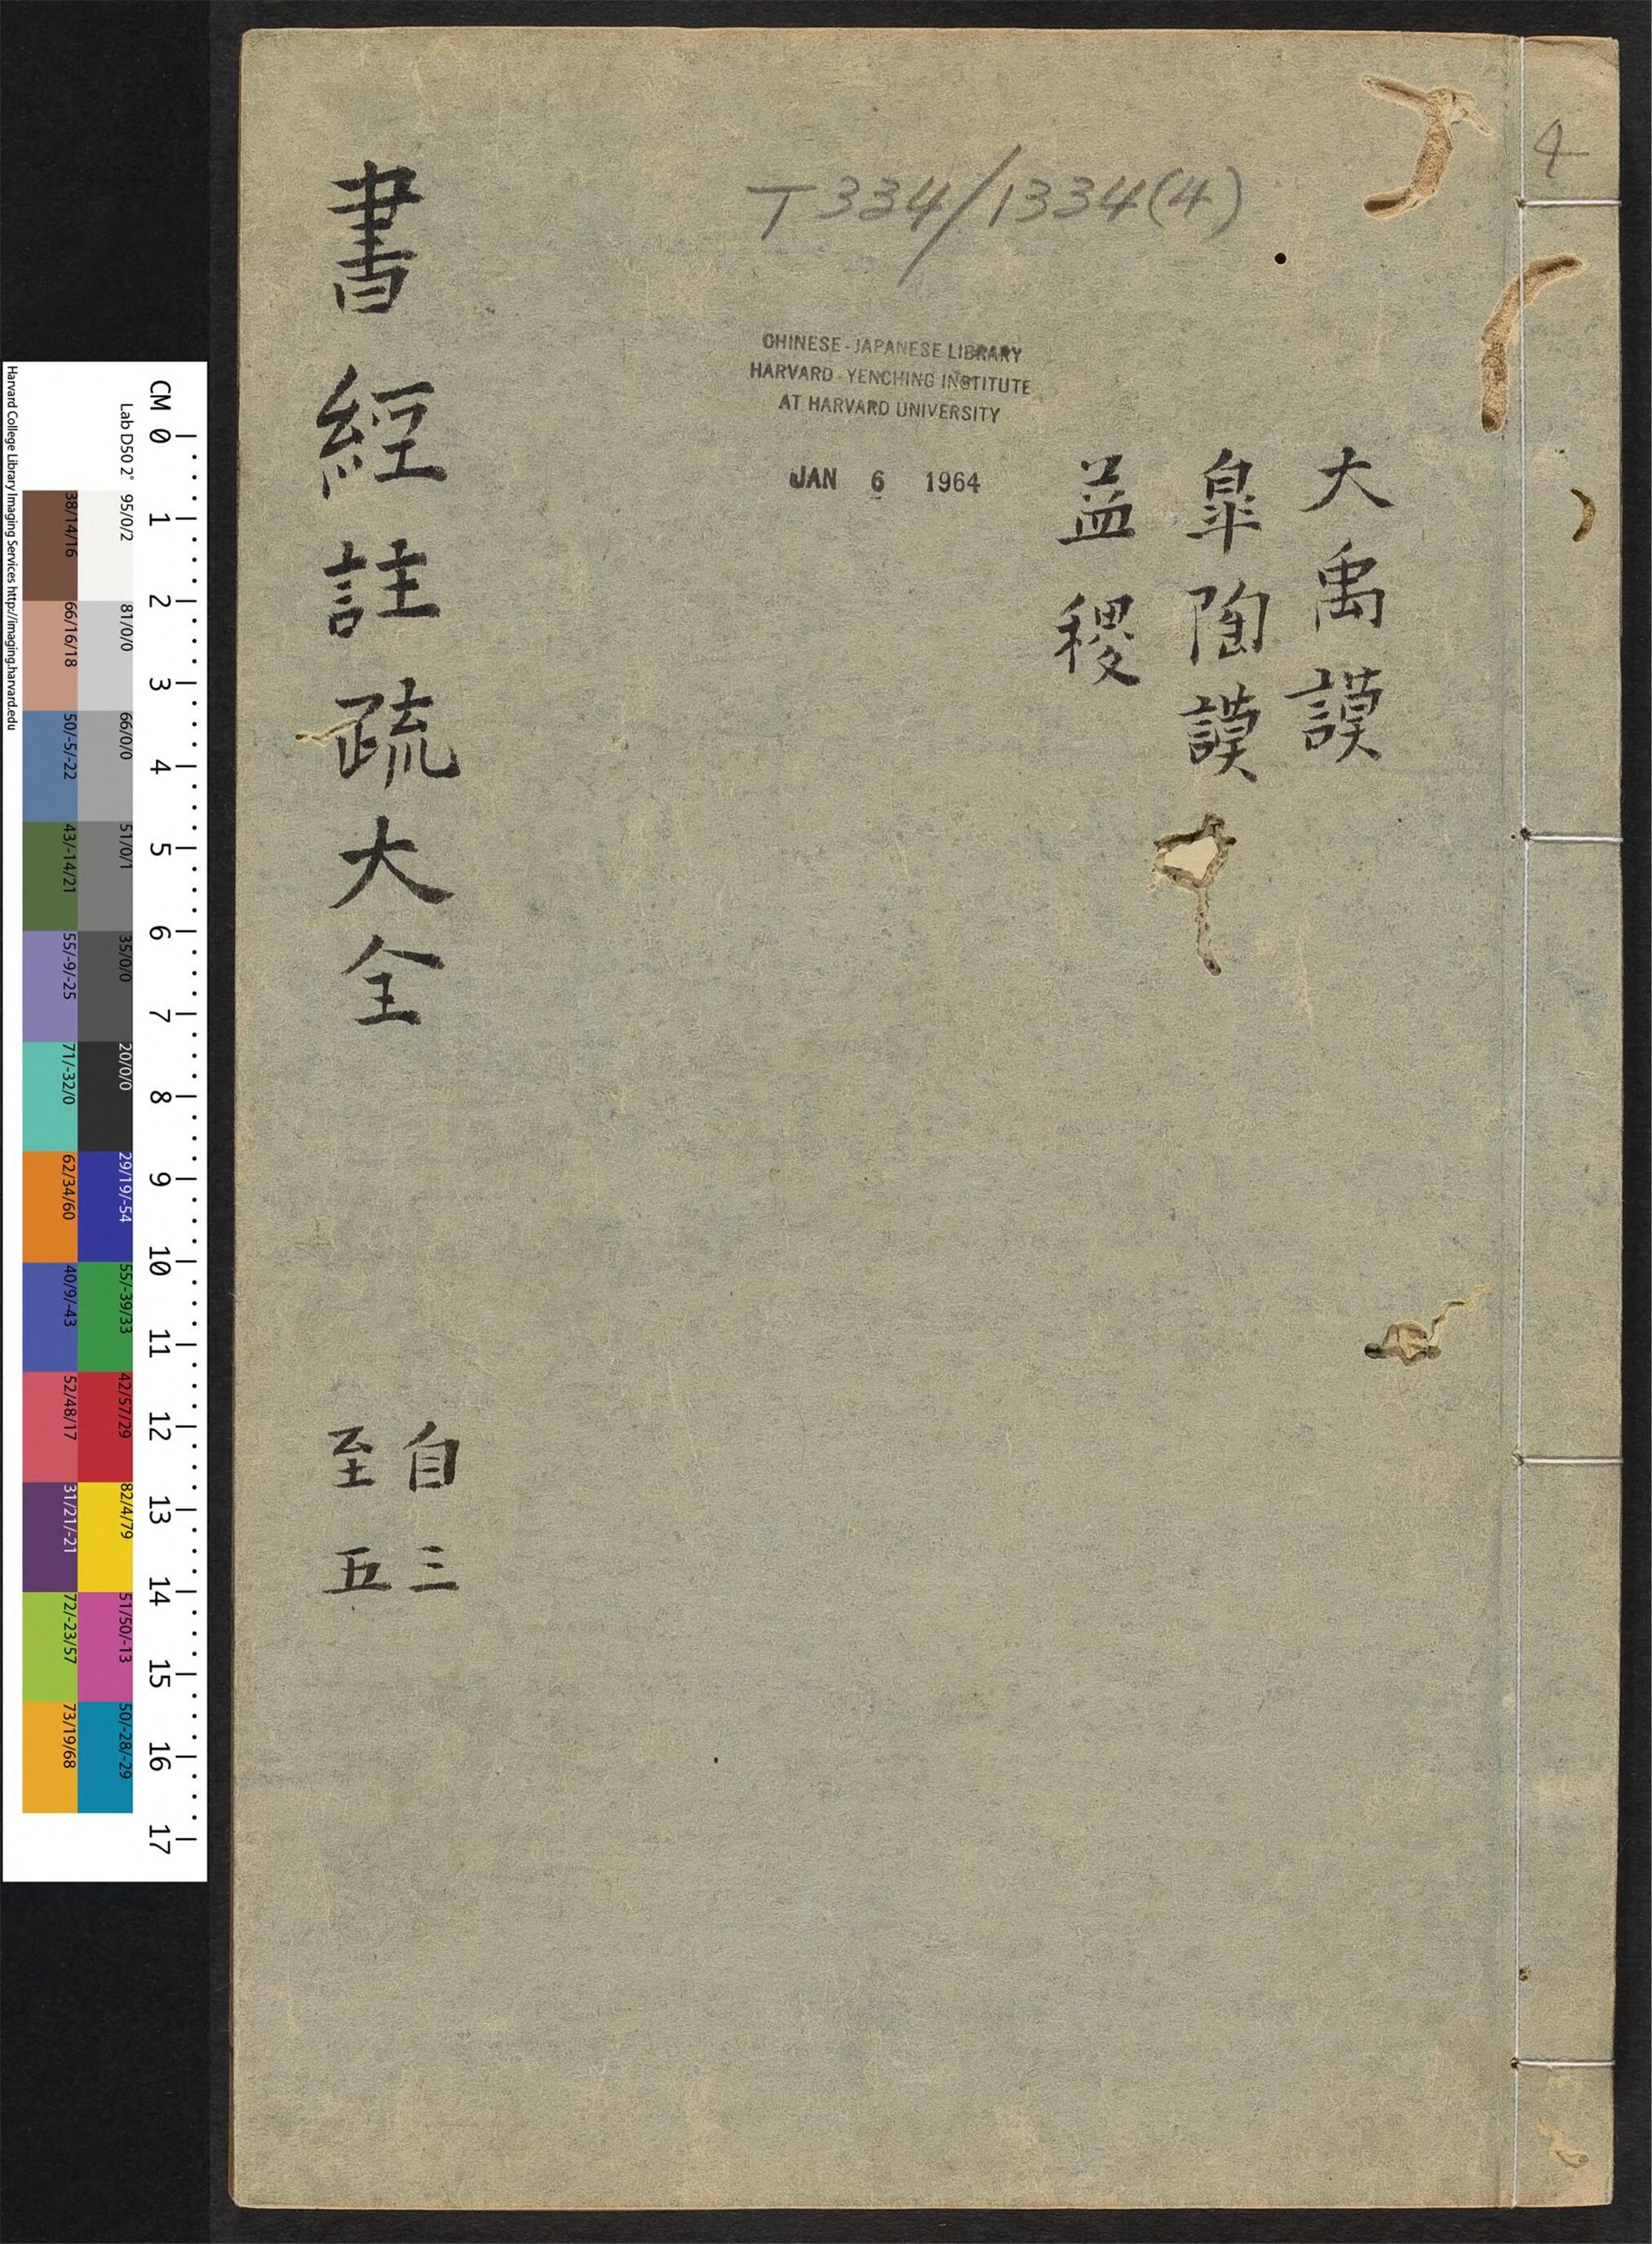 4
T 334/1334(4)
CHINESE-JAPANESE LIBRARY
HARVARD-YENCHING INSTITUTE
AT HARVARD UNIVERSITY
JAN 6 1964
大禹謨
皐陶謨
益稷
書經註疏大全
自三
至五
CM 0 1 2 3 4 5 6 7 8 9 10 11 12 13 14 15 16 17
Lab D50 2° 95/0/2 81/0/0 66/0/0 51/0/1 35/0/0 20/0/0 29/19/-54 55/-39/33 42/57/29 82/4/79 51/50/-13 50/-28/-29
38/14/16 66/16/18 50/-5/-22 43/-14/21 55/-9/-25 71/-32/0 62/34/60 40/9/-43 52/48/17 31/21/-21 72/-23/57 73/19/68
Harvard College Library Imaging Services http://imaging.harvard.edu